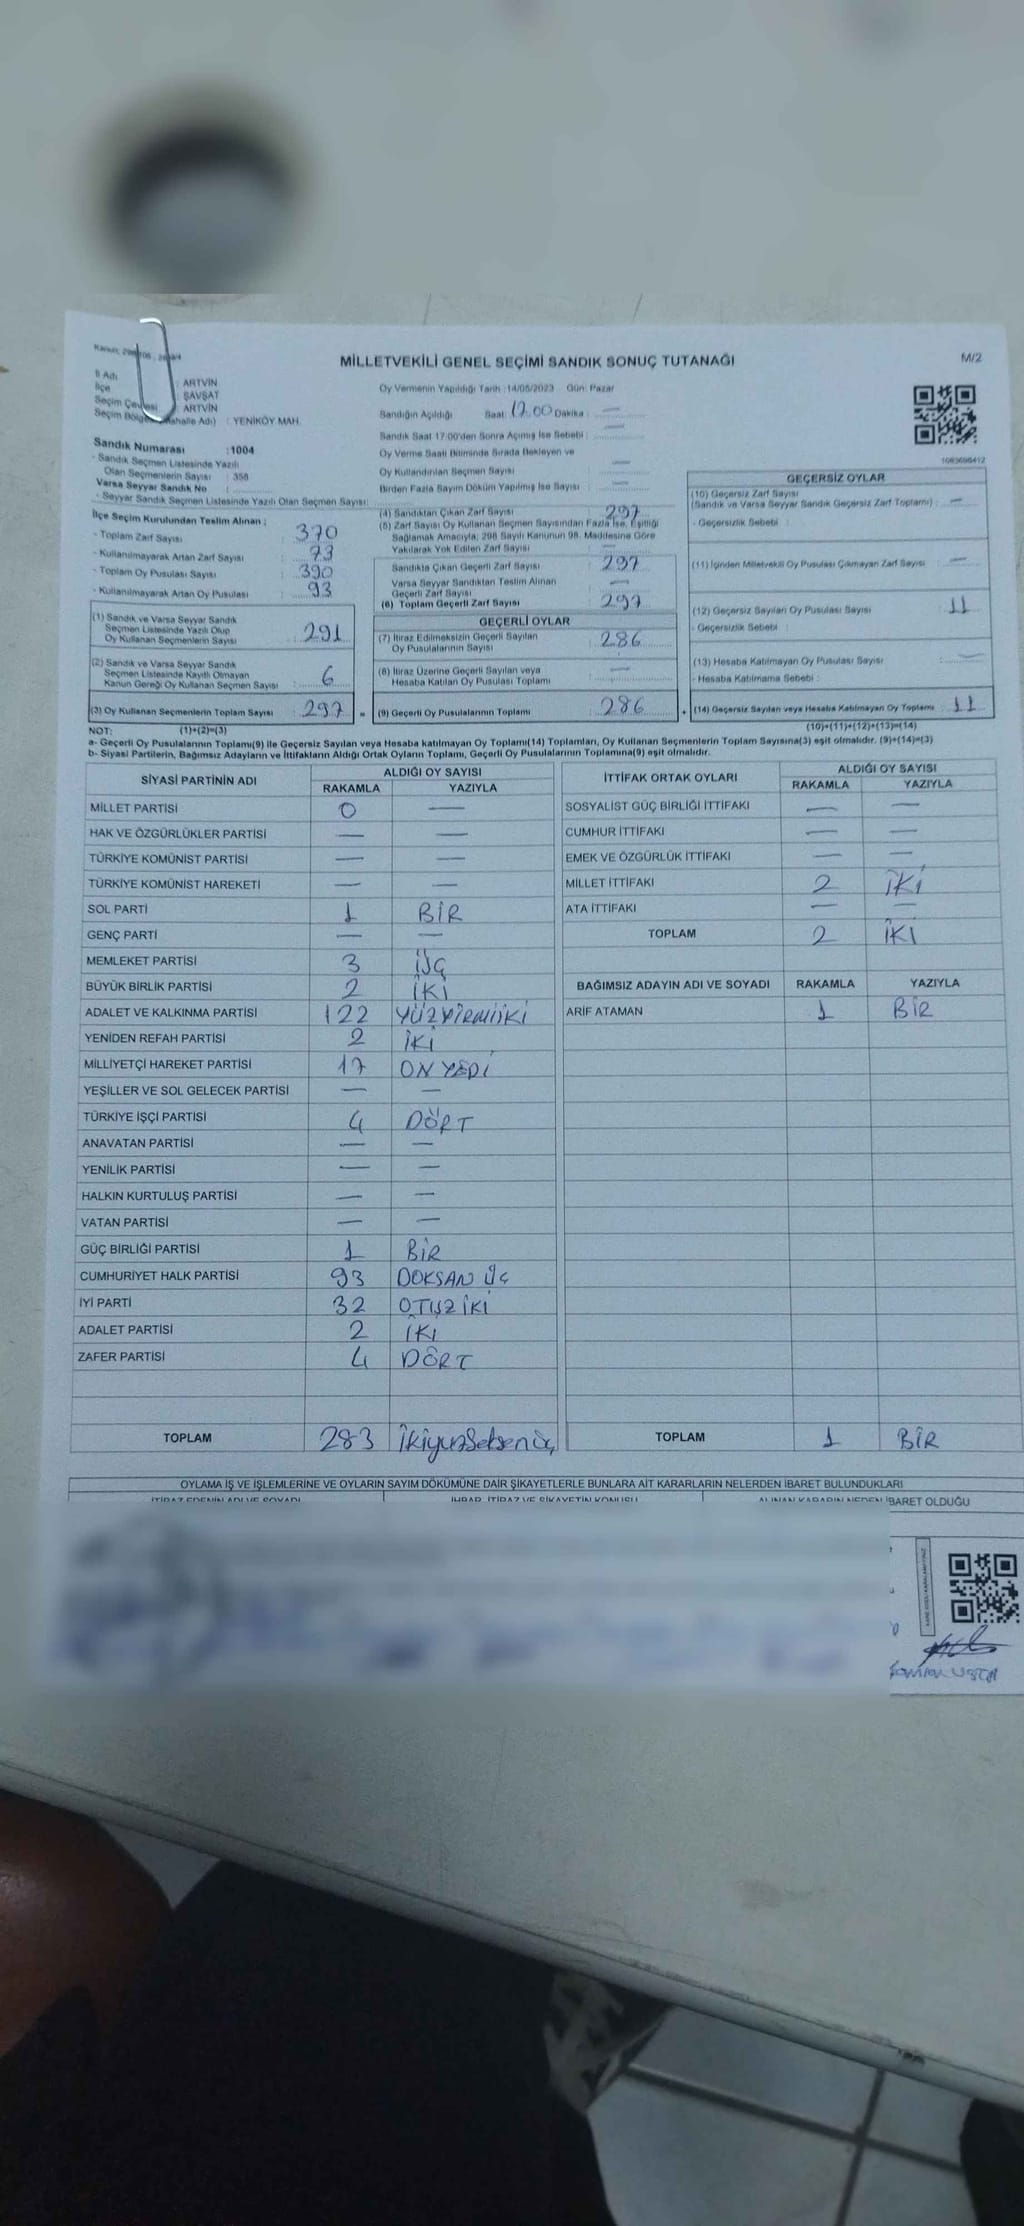 MİLLETVEKİLİ GENEL SEÇİMİ SANDIK SONUÇ TUTANAĞI M/2
İl Adı : ARTVİN
İlçe : ŞAVŞAT
Seçim Çevresi : ARTVİN
Seçim Bölgesi (Mahalle Adı) : YENİKÖY MAH.
Oy Vermenin Yapıldığı Tarih :14/05/2023 Gün: Pazar
Sandığın Açıldığı Saat: 17.00 Dakika : —
Sandık Saat 17:00'den Sonra Açımış İse Sebebi : —
Oy Verme Saati Bitiminde Sırada Bekleyen ve
Oy Kullandırılan Seçmen Sayısı —
Birden Fazla Sayım Döküm Yapılmış İse Sayısı : —
Sandık Numarası :1004
- Sandık Seçmen Listesinde Yazılı
Olan Seçmenlerin Sayısı : 356
Varsa Seyyar Sandık No :
- Seyyar Sandık Seçmen Listesinde Yazılı Olan Seçmen Sayısı:
İlçe Seçim Kurulundan Teslim Alınan ;
- Toplam Zarf Sayısı 370
- Kullanılmayarak Artan Zarf Sayısı 73
- Toplam Oy Pusulası Sayısı 390
- Kullanılmayarak Artan Oy Pusulası 93
(1) Sandık ve Varsa Seyyar Sandık
Seçmen Listesinde Yazılı Olup
Oy Kullanan Seçmenlerin Sayısı 291
(2) Sandık ve Varsa Seyyar Sandık
Seçmen Listesinde Kayıtlı Olmayan
Kanun Gereği Oy Kullanan Seçmen Sayısı 6
(3) Oy Kullanan Seçmenlerin Toplam Sayısı 297 =
(4) Sandıktan Çıkan Zarf Sayısı 297
(5) Zarf Sayısı Oy Kullanan Seçmen Sayısından Fazla İse, Eşitliği
Sağlamak Amacıyla; 298 Sayılı Kanunun 98. Maddesine Göre
Yakılarak Yok Edilen Zarf Sayısı —
Sandıkta Çıkan Geçerli Zarf Sayısı 297
Varsa Seyyar Sandıktan Teslim Alınan
Geçerli Zarf Sayısı —
(6) Toplam Geçerli Zarf Sayısı 297
GEÇERLİ OYLAR
(7) İtiraz Edilmeksizin Geçerli Sayılan
Oy Pusulalarının Sayısı 286
(8) İtiraz Üzerine Geçerli Sayılan veya
Hesaba Katılan Oy Pusulası Toplamı —
(9) Geçerli Oy Pusulalarının Toplamı 286 +
GEÇERSİZ OYLAR
(10) Geçersiz Zarf Sayısı
(Sandık ve Varsa Seyyar Sandık Geçersiz Zarf Toplamı) : —
- Geçersizlik Sebebi :
(11) İçinden Milletvekili Oy Pusulası Çıkmayan Zarf Sayısı —
(12) Geçersiz Sayılan Oy Pusulası Sayısı 11
- Geçersizlik Sebebi :
(13) Hesaba Katılmayan Oy Pusulası Sayısı —
- Hesaba Katılmama Sebebi :
(14) Geçersiz Sayılan veya Hesaba Katılmayan Oy Toplamı 11
NOT: (1)+(2)=(3) (10)+(11)+(12)+(13)=(14)
a- Geçerli Oy Pusulalarının Toplamı(9) ile Geçersiz Sayılan veya Hesaba katılmayan Oy Toplamı(14) Toplamları, Oy Kullanan Seçmenlerin Toplam Sayısına(3) eşit olmalıdır. (9)+(14)=(3)
b- Siyasi Partilerin, Bağımsız Adayların ve İttifakların Aldığı Ortak Oyların Toplamı, Geçerli Oy Pusulalarının Toplamına(9) eşit olmalıdır.
SİYASİ PARTİNİN ADI ALDIĞI OY SAYISI
RAKAMLA YAZIYLA
MİLLET PARTİSİ 0 —
HAK VE ÖZGÜRLÜKLER PARTİSİ — —
TÜRKİYE KOMÜNİST PARTİSİ — —
TÜRKİYE KOMÜNİST HAREKETİ — —
SOL PARTİ 1 BİR
GENÇ PARTİ — —
MEMLEKET PARTİSİ 3 ÜÇ
BÜYÜK BİRLİK PARTİSİ 2 İKİ
ADALET VE KALKINMA PARTİSİ 122 YÜZYİRMİİKİ
YENİDEN REFAH PARTİSİ 2 İKİ
MİLLİYETÇİ HAREKET PARTİSİ 17 ON YEDİ
YEŞİLLER VE SOL GELECEK PARTİSİ — —
TÜRKİYE İŞÇİ PARTİSİ 4 DÖRT
ANAVATAN PARTİSİ — —
YENİLİK PARTİSİ — —
HALKIN KURTULUŞ PARTİSİ — —
VATAN PARTİSİ — —
GÜÇ BİRLİĞİ PARTİSİ 1 BİR
CUMHURİYET HALK PARTİSİ 93 DOKSAN ÜÇ
İYİ PARTİ 32 OTUZ İKİ
ADALET PARTİSİ 2 İKİ
ZAFER PARTİSİ 4 DÖRT
TOPLAM 283 İkiyüzseksenüç
İTTİFAK ORTAK OYLARI ALDIĞI OY SAYISI
RAKAMLA YAZIYLA
SOSYALİST GÜÇ BİRLİĞİ İTTİFAKI — —
CUMHUR İTTİFAKI — —
EMEK VE ÖZGÜRLÜK İTTİFAKI — —
MİLLET İTTİFAKI 2 İKİ
ATA İTTİFAKI — —
TOPLAM 2 İKİ
BAĞIMSIZ ADAYIN ADI VE SOYADI RAKAMLA YAZIYLA
ARİF ATAMAN 1 BİR
TOPLAM 1 BİR
OYLAMA İŞ VE İŞLEMLERİNE VE OYLARIN SAYIM DÖKÜMÜNE DAİR ŞİKAYETLERLE BUNLARA AİT KARARLARIN NELERDEN İBARET BULUNDUKLARI
İTİRAZ EDENİN ADI VE SOYADI İHBAR, İTİRAZ VE ŞİKAYETİN KONUSU ALINAN KARARIN NEDEN İBARET OLDUĞU